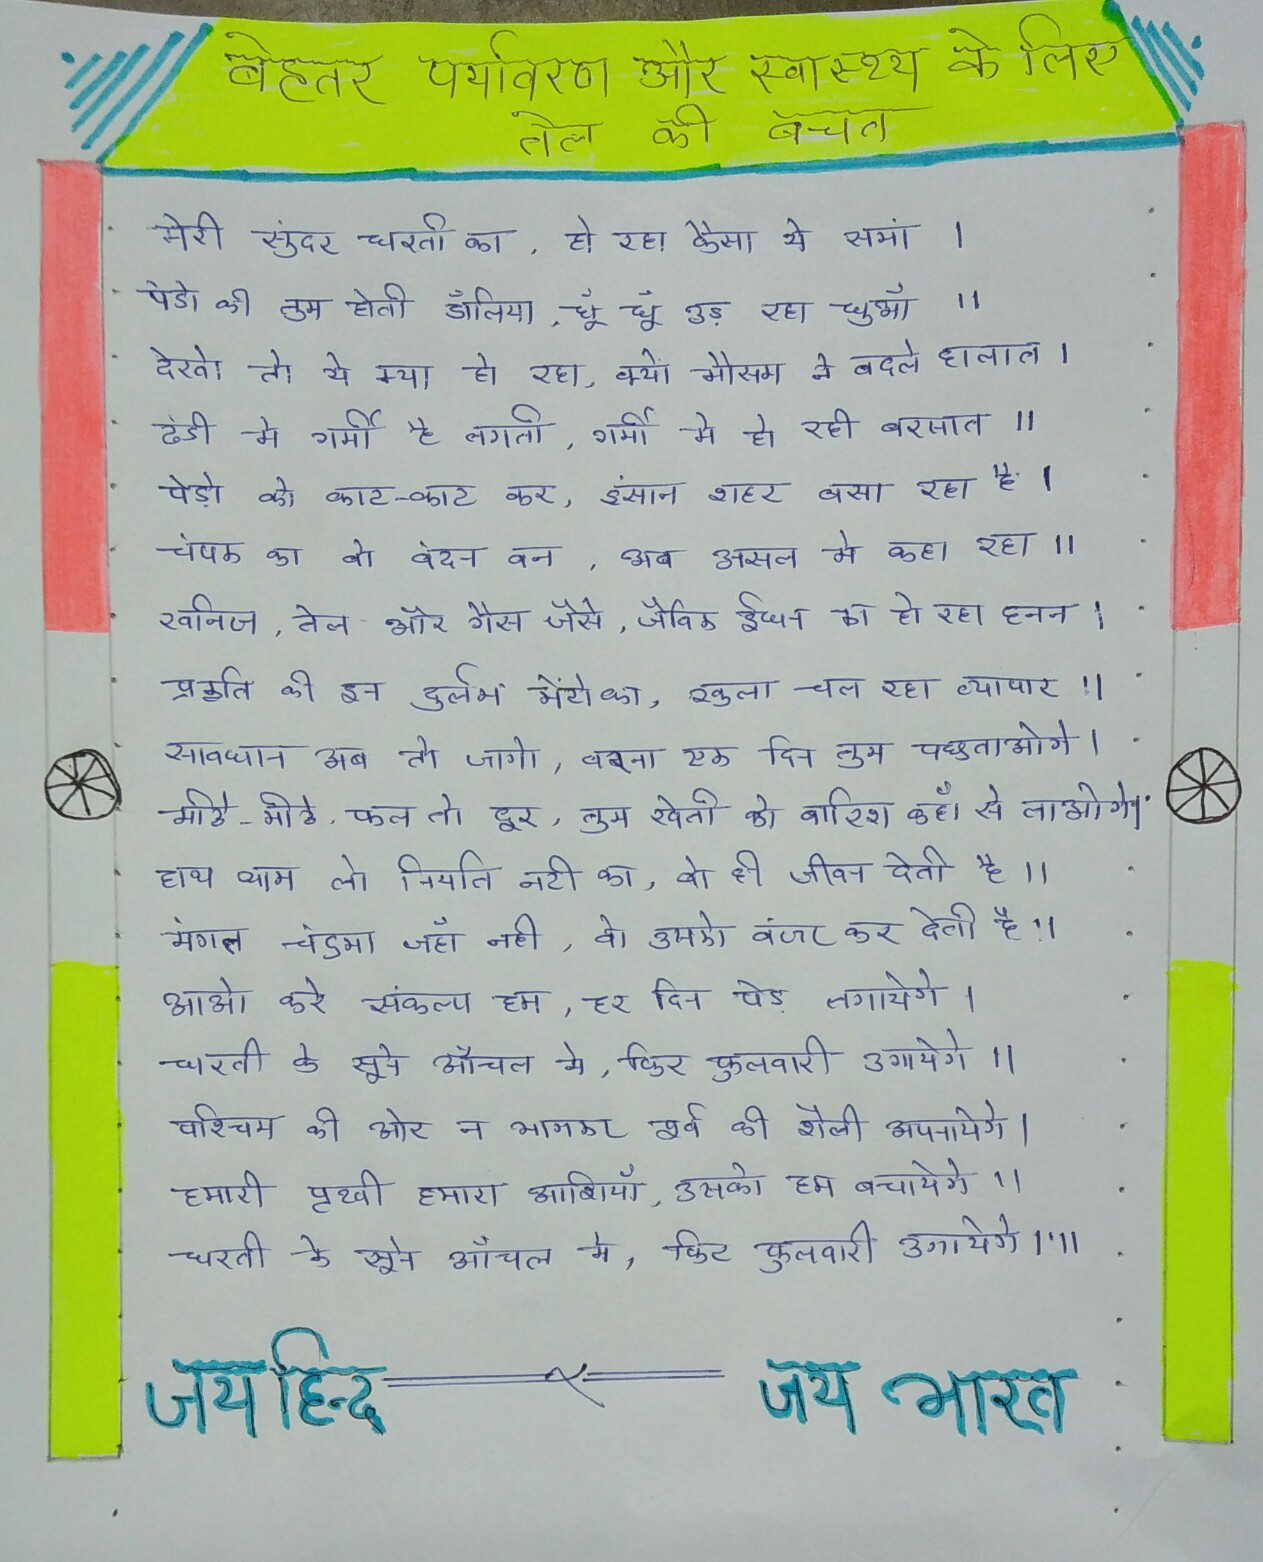 बेहतर पर्यावरण और स्वास्थ्य के लिए
तेल की बचत
मेरी सुंदर धरती का, हो रहा कैसा ये समां ।
पेडो की गुम होती डॅालिया, धूँ धूँ उड़ रहा धुआँ ॥
देखो तो ये क्या हो रहा, क्यों मौसम ने बदले हालात ।
ठंडी मे गर्मी है लगती, गर्मी मे हो रही बरसात ॥
पेड़ो को काट-काट कर, इंसान शहर बसा रहा है ।
चंपक का वो वंदन वन, अब असल मे कहा रहा ॥
खनिज, तेल और गैस जैसे, जैविक ईंधन का हो रहा हनन ।
प्रकृति की इन दुर्लभ भेंटो का, खुला चल रहा व्यापार ॥
सावधान अब तो जागो, वरना एक दिन तुम पछुताओगे ।
मीठे-मीठे फल तो दूर, तुम खेती को बारिश कहाँ से लाओगे॥
हाथ थाम लो नियति नटी का, वो ही जीवन देती है ॥
मंगल चंद्रमा जहाँ नही, वो उसको बंजर कर देती है ॥
आओ करे संकल्प हम, हर दिन पेड़ लगायेगे ।
धरती के सूने आँचल मे, फिर फुलवारी उगायेगे ॥
पश्चिम की ओर न भागकर पूर्व की शैली अपनायेगे ।
हमारी पृथ्वी हमारा आशियाँ, उसको हम बचायेगे ॥
धरती के सूने आँचल मे, फिर फुलवारी उगायेगे ।॥
जय हिन्द जय भारत